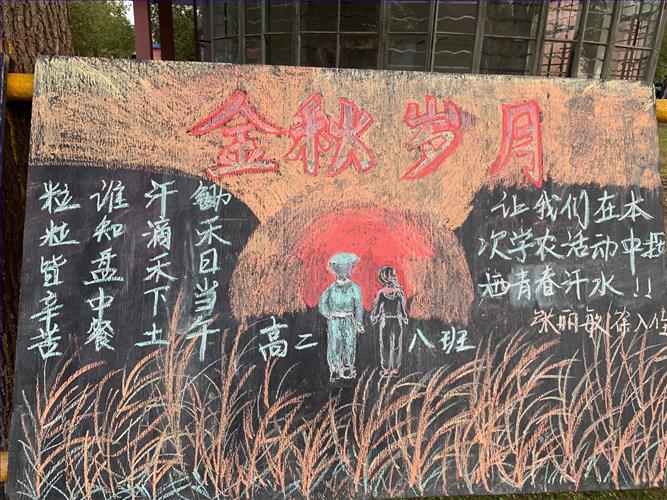 金秋岁月
锄禾日当午
汗滴禾下土
谁知盘中餐
粒粒皆辛苦
高二 八班
让我们在本
次学农活动中
洒青春汗水!!
张丽敏